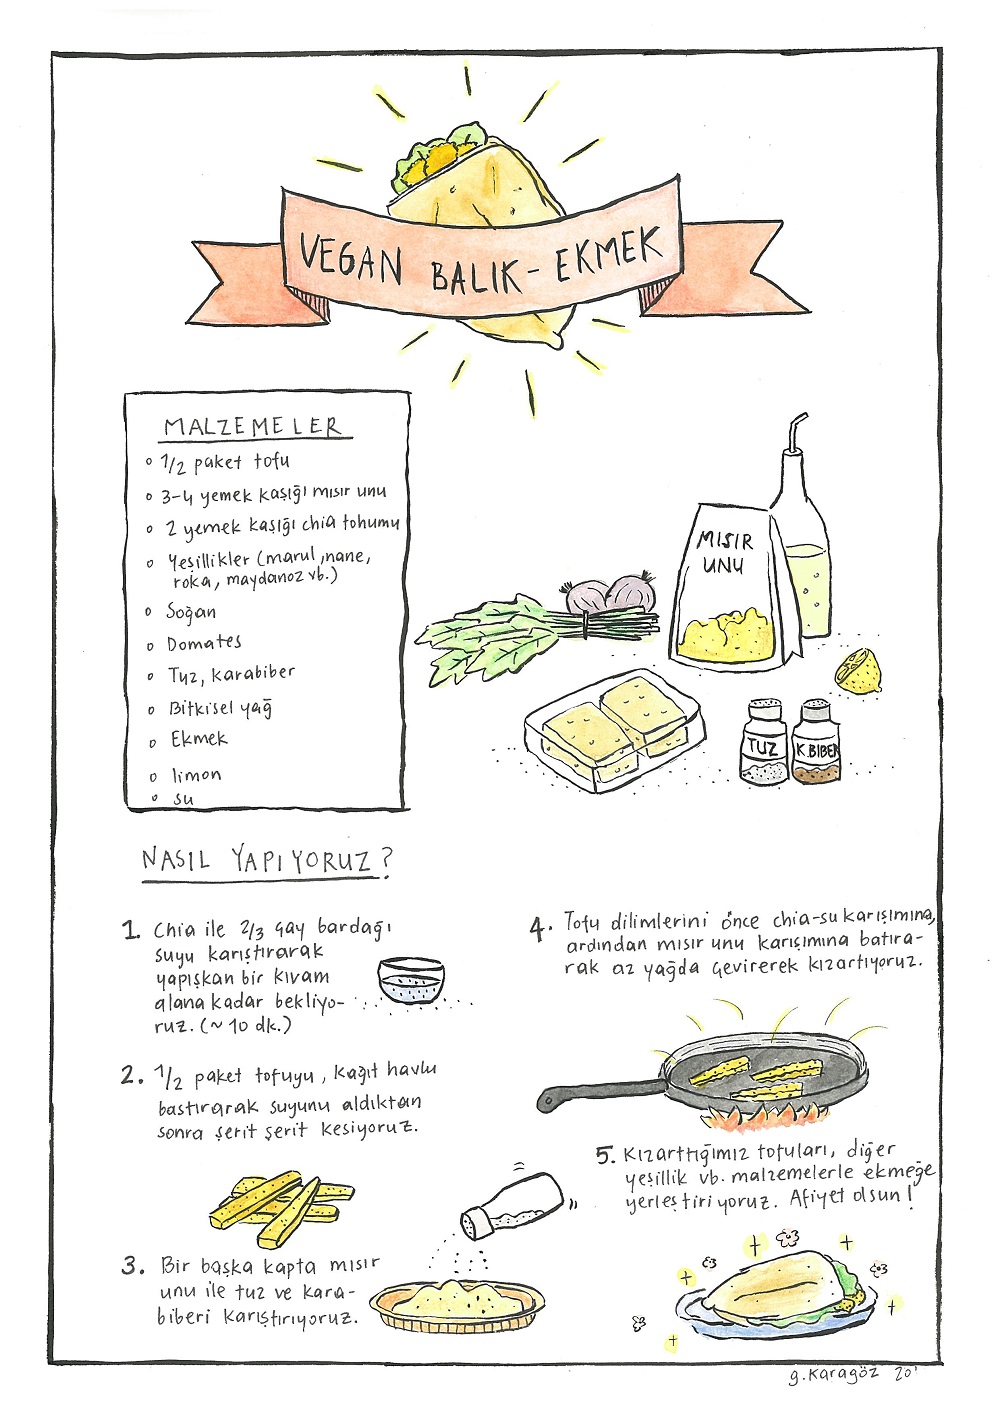 VEGAN BALIK-EKMEK
MALZEMELER
1/2 paket tofu
3-4 yemek kaşığı mısır unu
2 yemek kaşığı chia tohumu
Yeşillikler (marul, nane,
roka, maydanoz vb.)
Soğan
Domates
Tuz, karabiber
Bitkisel yağ
Ekmek
limon
su
MISIR
UNU
TUZ
K.BİBER
NASIL YAPIYORUZ?
1. Chia ile 2/3 çay bardağı
suyu karıştırarak
yapışkan bir kıvam
alana kadar bekliyo-
ruz. (~10 dk.)
2. 1/2 paket tofuyu, kağıt havlu
bastırarak suyunu aldıktan
sonra şerit şerit kesiyoruz.
3. Bir başka kapta mısır
unu ile tuz ve kara-
biberi karıştırıyoruz.
4. Tofu dilimlerini önce chia-su karışımına,
ardından mısır unu karışımına batıra-
rak az yağda çevirerek kızartıyoruz.
5. Kızarttığımız tofuları, diğer
yeşillik vb. malzemelerle ekmeğe
yerleştiriyoruz. Afiyet olsun!
g.karagöz 20'